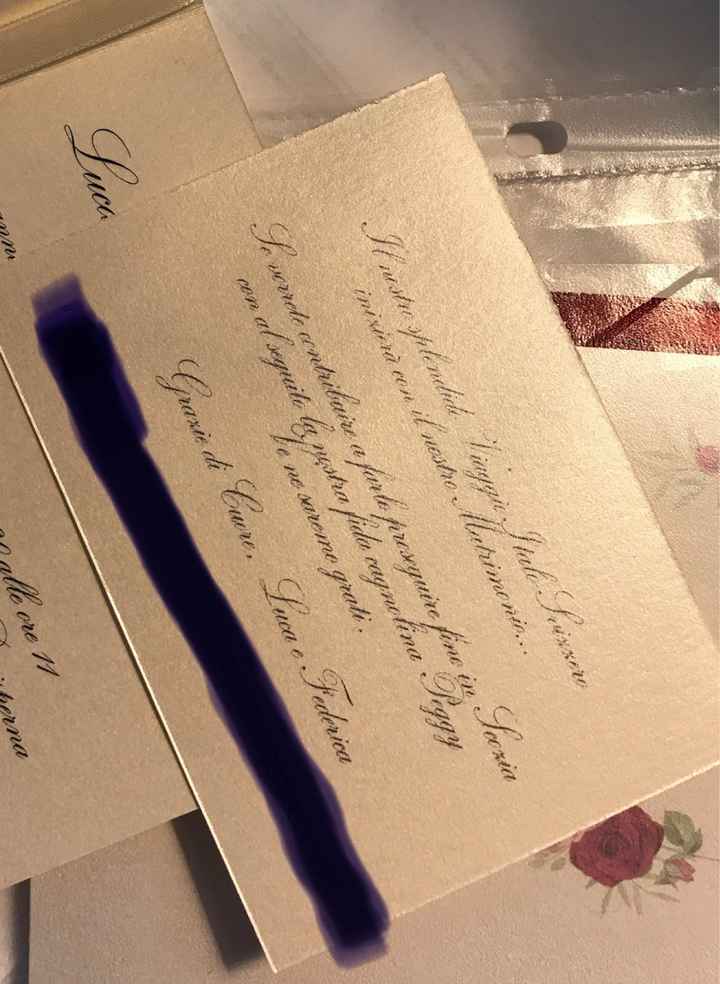 Luca
ann
Il nostro splendido Viaggio Italo Svizzero
inizierà con il nostro Matrimonio...
Se vorrete contribuire a farlo proseguire fino in Scozia
con al seguito la nostra fida cagnolina Peggy
Ve ne saremo grati.
Grazie di Cuore,
Luca e Federica
alle ore 11